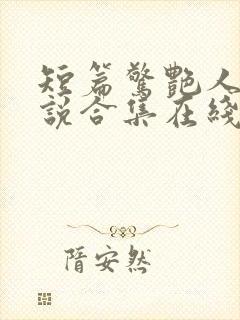 短篇驚艷人
說合集在綫
隋安然